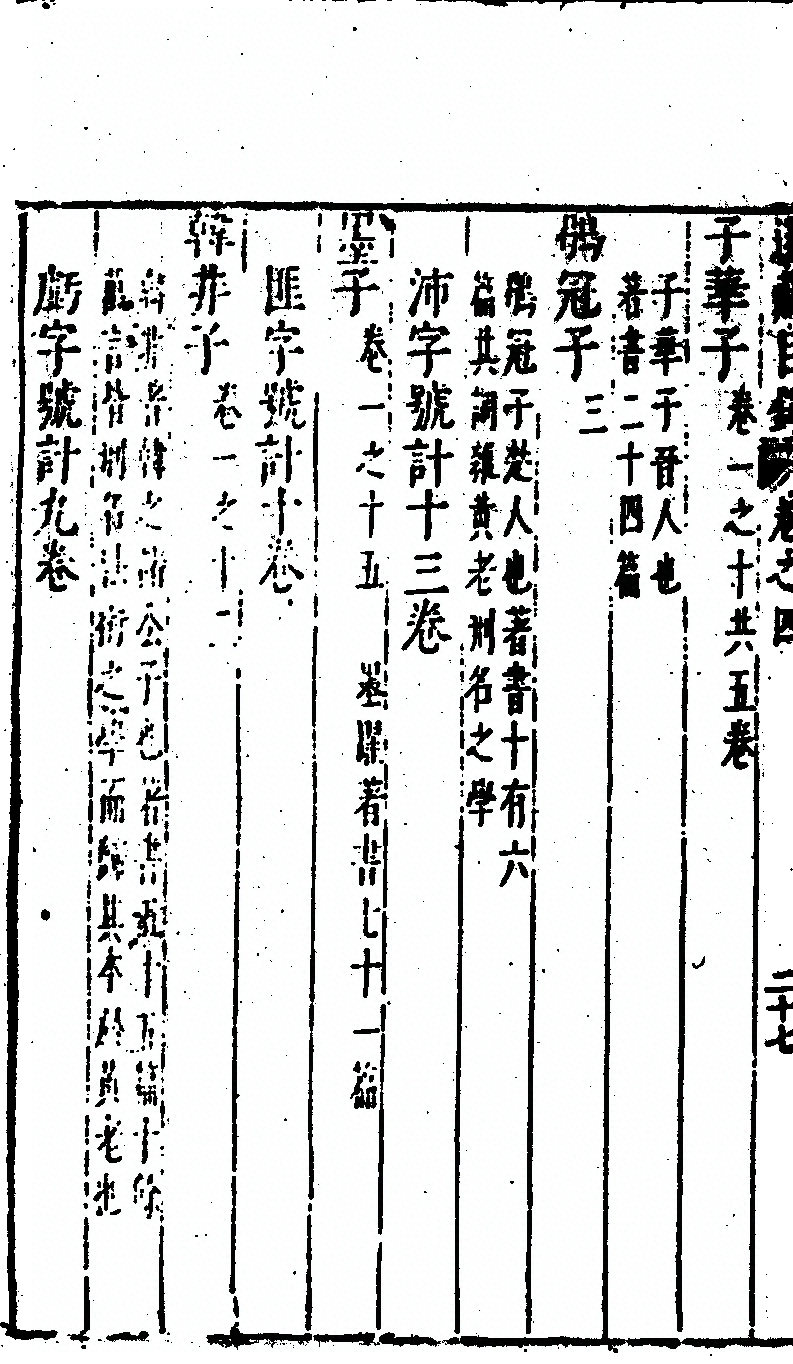 道藏目錄卷之四
二十七
子華子卷一之十共五卷
子華子晉人也
著書二十四篇
鶡冠子三
鶡冠子楚人也著書十有六
篇其詞雜黃老刑名之學
沛字號計十三卷
墨子卷一之十五 墨翟著書七十一篇
匪字號計十卷
韓非子卷一之十一
韓非者韓之諸公子也著書五十五篇十餘
萬言皆刑名法術之學而歸其本於黃老也
虧字號計九卷